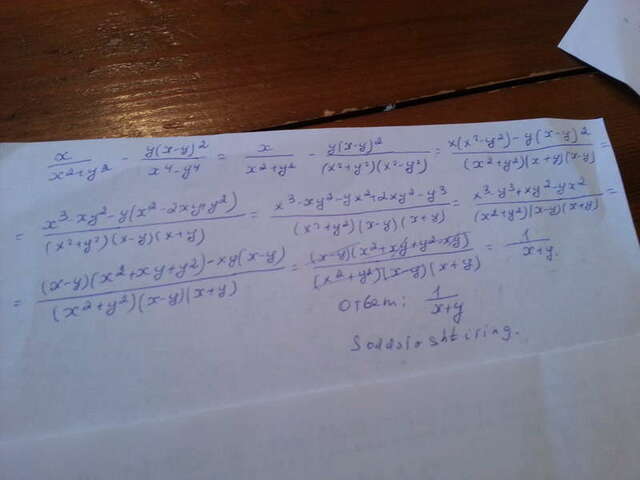 x/(x²+y²) - y(x-y)²/(x⁴-y⁴) = x/(x²+y²) - y(x-y)²/((x²+y²)(x²-y²)) = (x(x²-y²)-y(x-y)²)/((x²+y²)(x+y)(x-y)) =
= (x³-xy²-y(x²-2xy+y²))/((x²+y²)(x-y)(x+y)) = (x³-xy²-yx²+2xy²-y³)/((x²+y²)(x-y)(x+y)) = (x³-y³+xy²-yx²)/((x²+y²)(x-y)(x+y)) =
= ((x-y)(x²+xy+y²)-xy(x-y))/((x²+y²)(x-y)(x+y)) = ((x-y)(x²+xy+y²-xy))/((x²+y²)(x-y)(x+y)) = 1/(x+y).
Ответ: 1/(x+y)
Soddalashtiring.